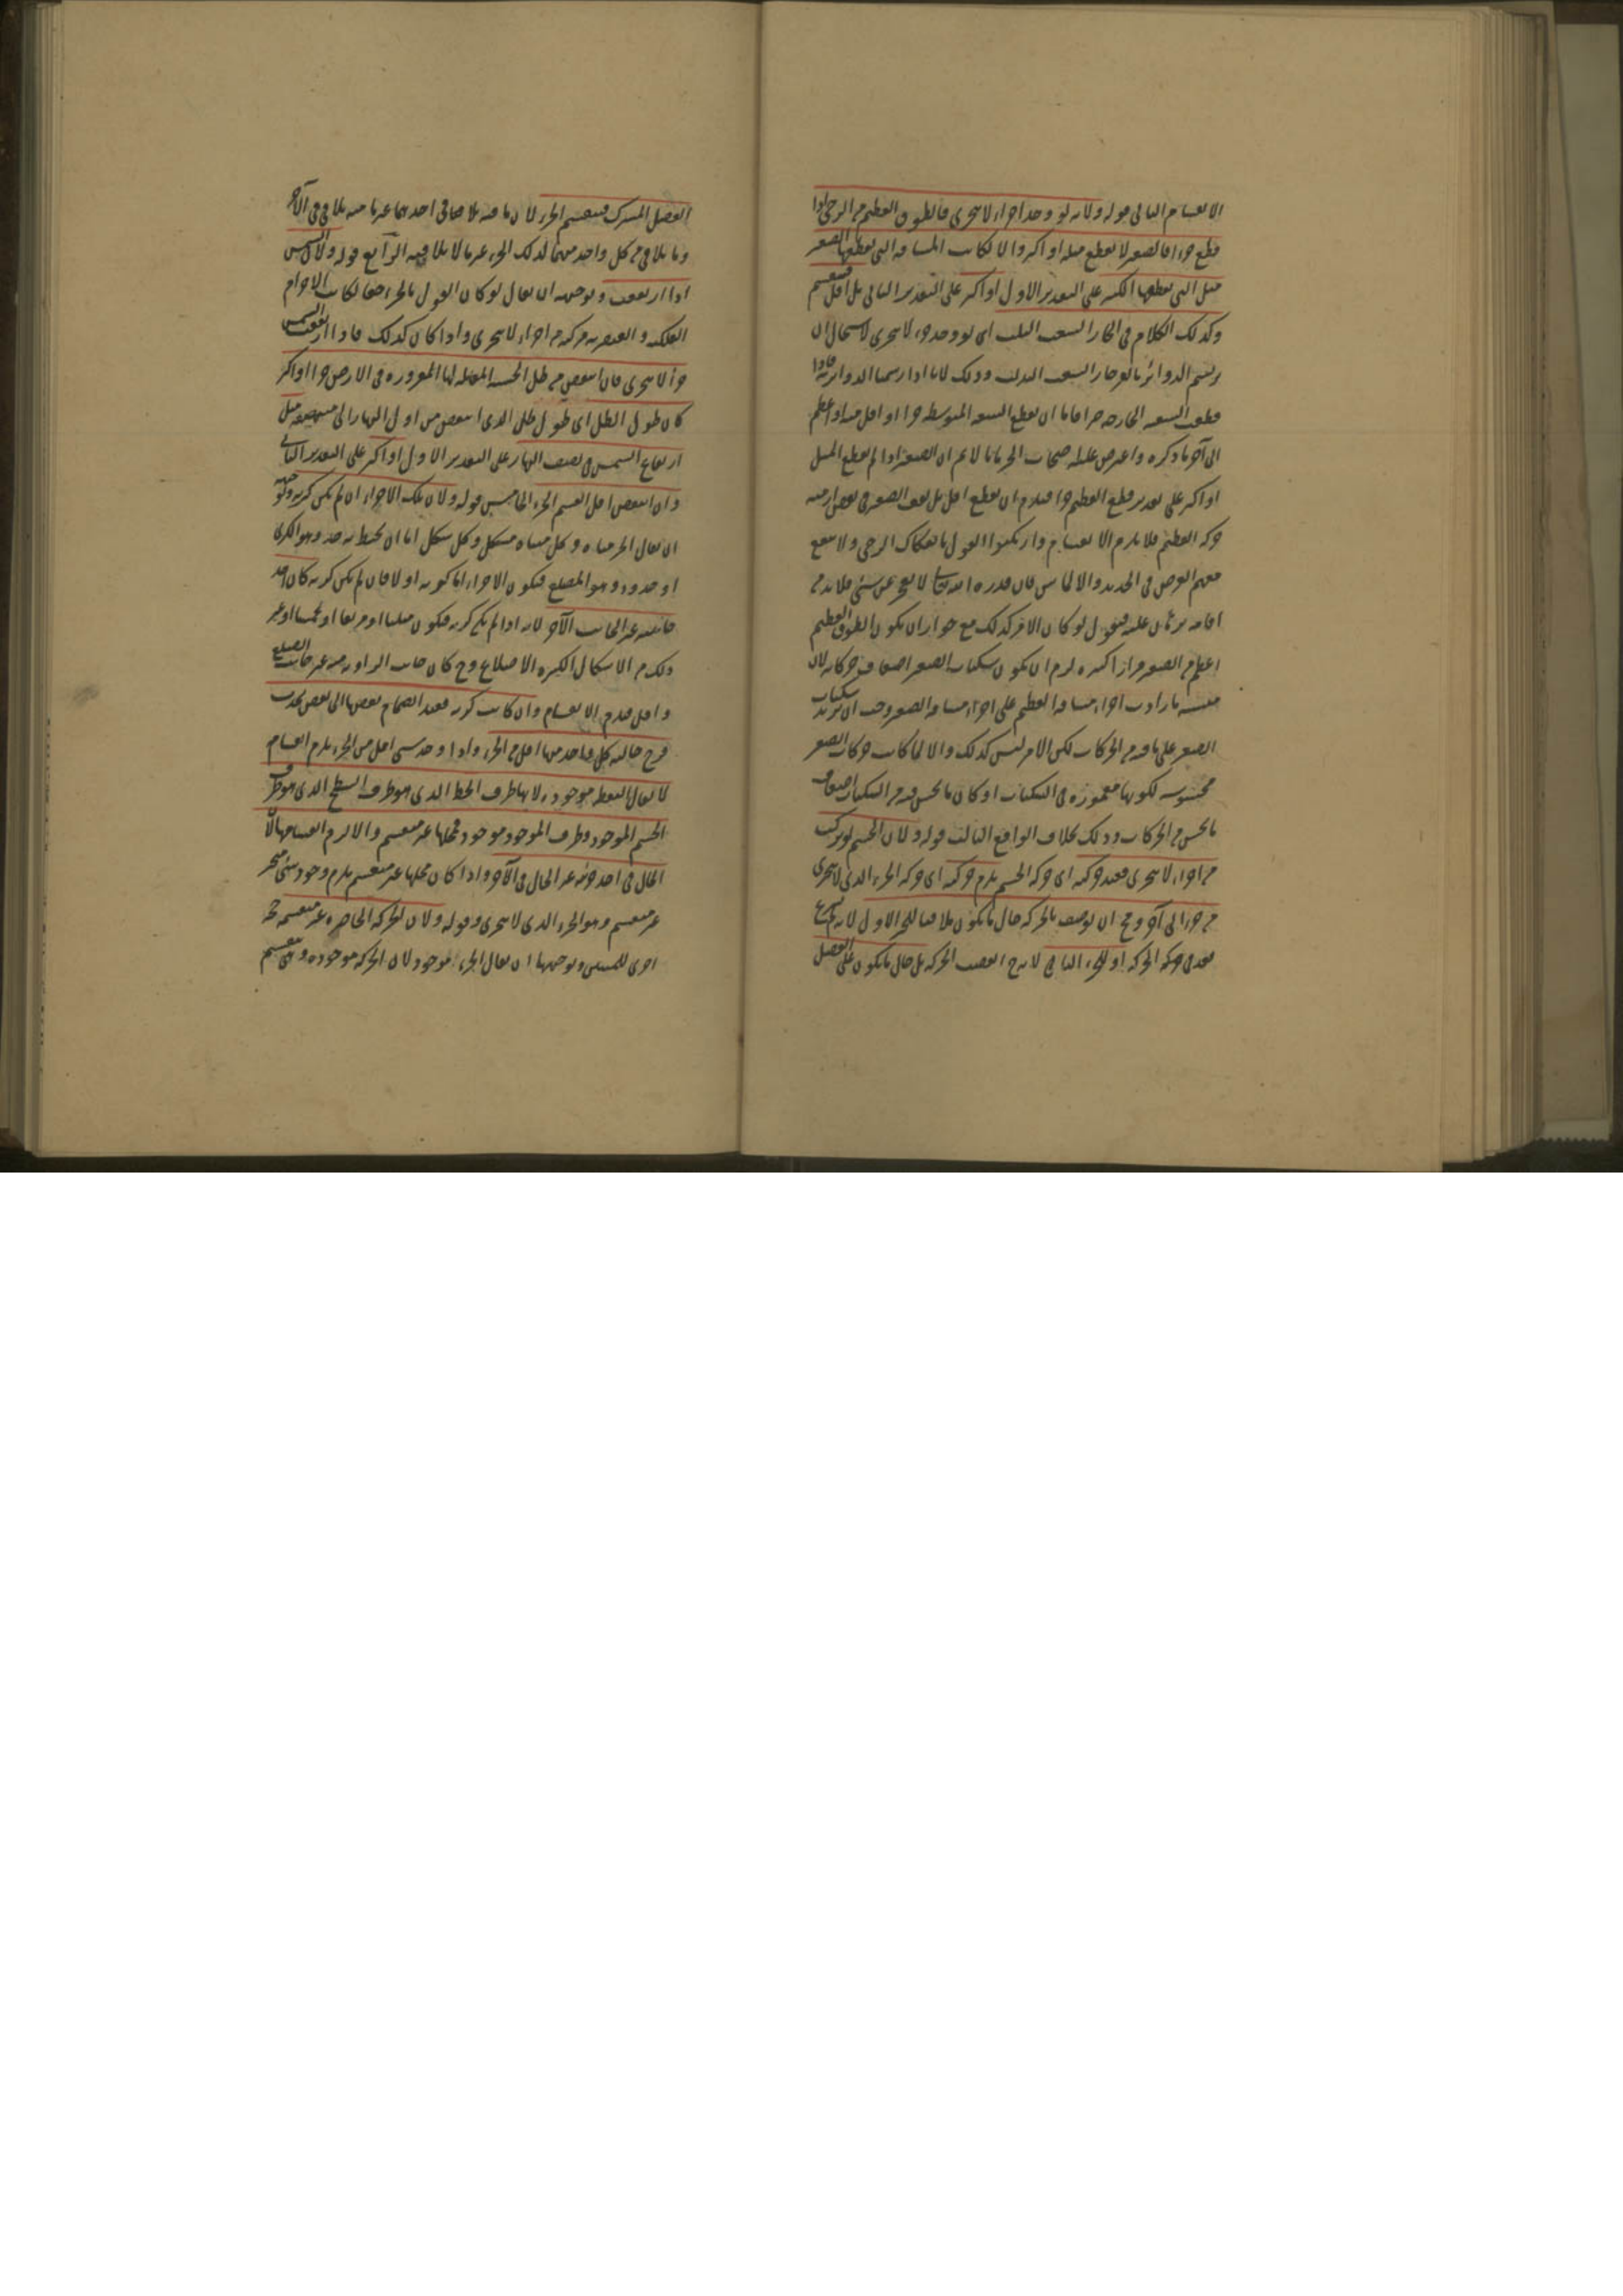 الانقسام الثاني قوله ولانه لو وجد اجزاء لا تتجزى فالطوق العظيم من الرحى اذا
قطع جزءا فالصغير لا يقطع مثله او اكثر والا لكانت المسافة التي يقطعها الصغير
مثل التي يقطعها الكبير على التقدير الاول او اكثر على التقدير الثاني بل اقل فينقسم
وكذلك الكلام في الفرجار ذي الشعب الثلث اي لو وجد جزء لا يتجزى لاستحال ان
يرتسم الدوائر بالفرجار ذي الشعب الثلث وذلك لانا اذا رسمنا الدوائر به فاذا
قطعت الشعبة الخارجة جزءا فاما ان يقطع الشعبة المتوسطة جزءا او اقل منه او اعظم
الى آخر ما ذكره واعترض عليه صاحب بانا لا نم ان الصغير اذا لم يقطع المثل
او اكثر على تقدير قطع العظيم جزءا فيلزم ان يقطع اقل بل يقف الصغير في بعض ازمنة
حركة العظيم فلا يلزم الانقسام وارتكبوا القول بانفكاك الرحى
معهم الفرض في الحديد والالماس فان قدرة الله تعالى لا تعجز عن شئ فلا بد من
اقامة برهان عليه فنقول لو كان الامر كذلك مع جواز ان يكون الطوق العظيم
اعظم من الصغير مرارا كثيرة لزم ان يكون سكنات الصغير اضعاف حركاته لان
نسبة ما زادت اجزاء مسافة العظيم على اجزاء مسافة الصغير وجب ان يزيد سكنات
الصغير على ما فيه من الحركات لكن الامر ليس كذلك والا لما كانت حركات الصغير
محسوسة لكونها مغمورة في السكنات او كان ما يحس فيه من السكنات اضعاف
ما يحس من الحركات وذلك بخلاف الواقع الثالث قوله ولان الجسم لو تركب
من اجزاء لا تتجزى فعند حركته اي حركة الجسم يلزم حركته اي حركة الجزء الذي لا يتجزى
من جزء الى آخر وح ان يوصف بالحركة حال ما يكون ملاقيا للجزء الاول لانه لم يشرع
بعد في حركة الحركة او للجزء الثاني لانه ح انقضت الحركة بل حال ما يكون على الفصل
الفصل المشترك فينقسم الجزء لان ما منه يلاقي احدهما غير ما منه يلاقي الآخر
وما يلاقي من كل واحد منهما لذلك الجزء غير ما لا يلاقيه الرابع قوله ولان الشمس
اذا ارتفعت وتوجيهه ان يقال لو كان القول بالجزء حقا لكانت الاجرام
الفلكية والعنصرية مركبة من اجزاء لا تتجزى واذا كان كذلك فاذا ارتفعت الشمس
جزءا لا يتجزى فان انتقص من ظل الخشبة المقابلة لها المغروزة في الارض جزءا او اكثر
كان طول الظل اي طول ظل الذي انتقص من اول النهار الى منتصفه مثل
ارتفاع الشمس في نصف النهار على التقدير الاول او اكثر على التقدير الثاني
وان انتقص اقل انقسم الجزء الخامس قوله ولان تلك الاجزاء ان لم يكن كرية وتوجيهه
ان يقال الجزء متناه وكل متناه متشكل وكل شكل اما ان يحيط به حد وهو الكرى
او حدود وهو المضلع فيكون الاجزاء اما كرية او لا فان لم يكن كرية كان احد
جانبيه غير الجانب الآخر لانه اذا لم يكن كرية فيكون مثلثا او مربعا او مخمسا او غير
ذلك من الاشكال الكثيرة الاضلاع وح كان جانب الزاوية منه غير جانب الضلع
واقل فيلزم الانقسام وان كانت كرية فعند انضمام بعضها الى بعض يحدث
فرج خالية كل واحد منها اقل من الجزء واذا وجد شئ اقل من الجزء يلزم انقسام
لا يقال النقطة موجودة لانها طرف الخط الذي هو طرف السطح الذي هو طرف
الجسم الموجود وطرف الموجود موجود فمحلها غير منقسم والا لزم انقسامها لان
الحال في احد جزئيه غير الحال في الآخر واذا كان محلها غير منقسم يلزم وجود شئ متحيز
غير منقسم وهو الجزء الذي لا يتجزى وقوله ولان الحركة الحاضرة غير منقسمة حجة
اخرى للمثبتين وتوجيهها ان يقال الجزء موجود لان الحركة موجودة